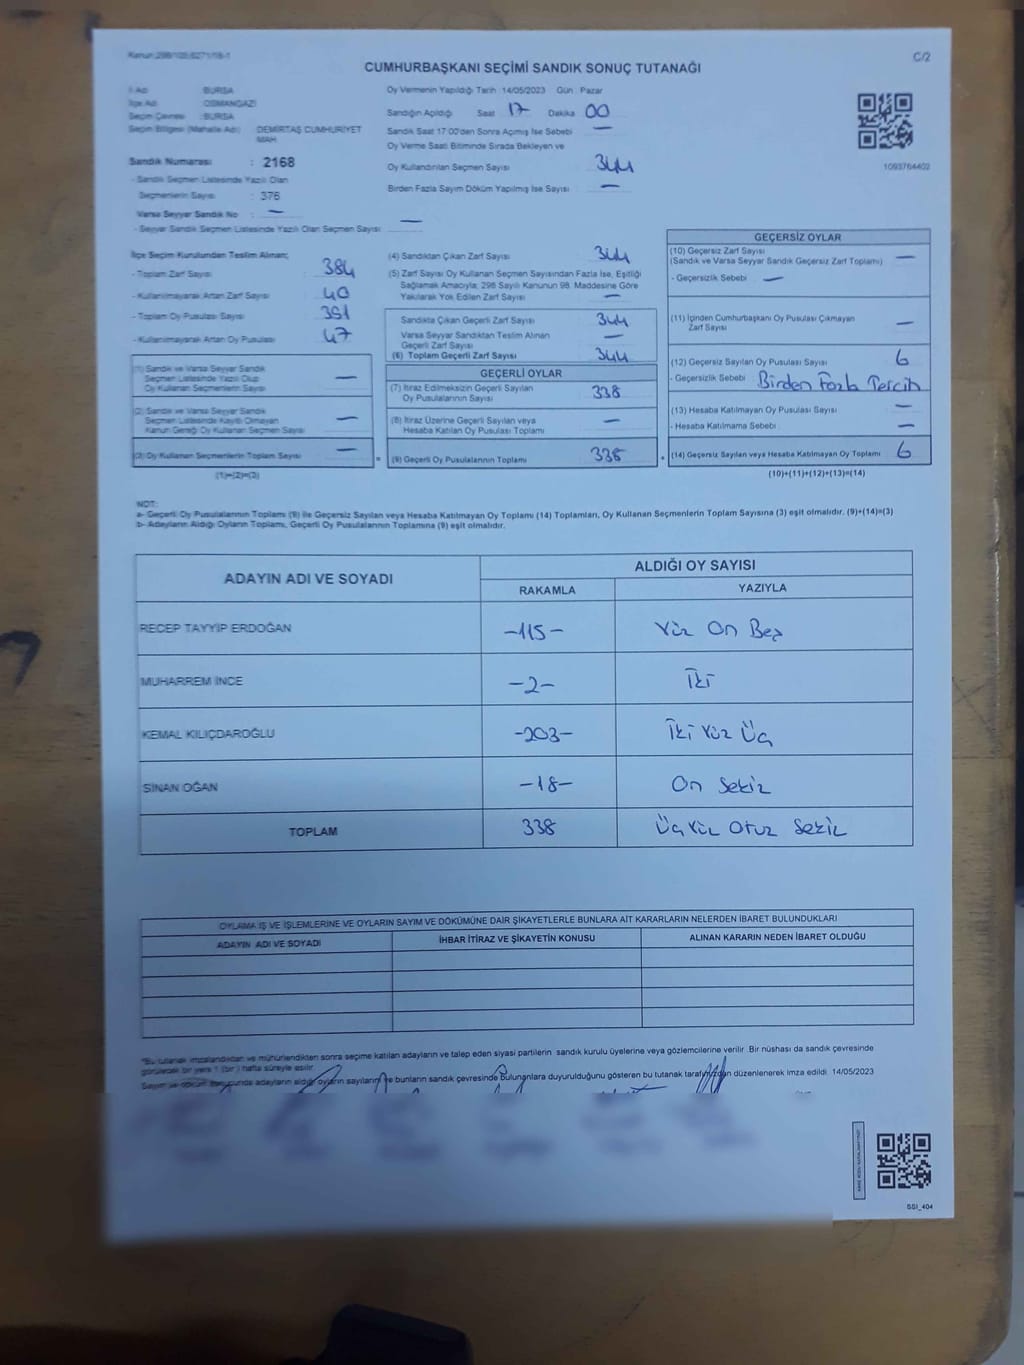 Kanun:298/105;6271/18-1
C/2
CUMHURBAŞKANI SEÇİMİ SANDIK SONUÇ TUTANAĞI
İl Adı : BURSA
İlçe Adı : OSMANGAZİ
Seçim Çevresi : BURSA
Seçim Bölgesi (Mahalle Adı) : DEMİRTAŞ CUMHURİYET MAH
Sandık Numarası : 2168
- Sandık Seçmen Listesinde Yazılı Olan
Seçmenlerin Sayısı : 376
Varsa Seyyar Sandık No : —
- Seyyar Sandık Seçmen Listesinde Yazılı Olan Seçmen Sayısı —
Oy Vermenin Yapıldığı Tarih :14/05/2023 Gün : Pazar
Sandığın Açıldığı Saat 17 Dakika 00
Sandık Saat 17:00'den Sonra Açımış İse Sebebi —
Oy Verme Saati Bitiminde Sırada Bekleyen ve
Oy Kullandırılan Seçmen Sayısı 344
Birden Fazla Sayım Döküm Yapılmış İse Sayısı —
1093764402
İlçe Seçim Kurulundan Teslim Alınan;
- Toplam Zarf Sayısı : 384
- Kullanılmayarak Artan Zarf Sayısı : 40
- Toplam Oy Pusulası Sayısı : 391
- Kullanılmayarak Artan Oy Pusulası : 47
(1) Sandık ve Varsa Seyyar Sandık
Seçmen Listesinde Yazılı Olup
Oy Kullanan Seçmenlerin Sayısı —
(2) Sandık ve Varsa Seyyar Sandık
Seçmen Listesinde Kayıtlı Olmayan
Kanun Gereği Oy Kullanan Seçmen Sayısı —
(3) Oy Kullanan Seçmenlerin Toplam Sayısı —
(1)+(2)=(3)
(4) Sandıktan Çıkan Zarf Sayısı 344
(5) Zarf Sayısı Oy Kullanan Seçmen Sayısından Fazla İse, Eşitliği
Sağlamak Amacıyla; 298 Sayılı Kanunun 98. Maddesine Göre
Yakılarak Yok Edilen Zarf Sayısı —
Sandıkta Çıkan Geçerli Zarf Sayısı 344
Varsa Seyyar Sandıktan Teslim Alınan
Geçerli Zarf Sayısı —
(6) Toplam Geçerli Zarf Sayısı 344
GEÇERLİ OYLAR
(7) İtiraz Edilmeksizin Geçerli Sayılan
Oy Pusulalarının Sayısı 338
(8) İtiraz Üzerine Geçerli Sayılan veya
Hesaba Katılan Oy Pusulası Toplamı —
= (9) Geçerli Oy Pusulalarının Toplamı 338
GEÇERSİZ OYLAR
(10) Geçersiz Zarf Sayısı
(Sandık ve Varsa Seyyar Sandık Geçersiz Zarf Toplamı) —
- Geçersizlik Sebebi : —
(11) İçinden Cumhurbaşkanı Oy Pusulası Çıkmayan
Zarf Sayısı —
(12) Geçersiz Sayılan Oy Pusulası Sayısı 6
- Geçersizlik Sebebi : Birden Fazla Tercih
(13) Hesaba Katılmayan Oy Pusulası Sayısı —
- Hesaba Katılmama Sebebi : —
+ (14) Geçersiz Sayılan veya Hesaba Katılmayan Oy Toplamı 6
(10)+(11)+(12)+(13)=(14)
NOT:
a- Geçerli Oy Pusulalarının Toplamı (9) ile Geçersiz Sayılan veya Hesaba Katılmayan Oy Toplamı (14) Toplamları, Oy Kullanan Seçmenlerin Toplam Sayısına (3) eşit olmalıdır. (9)+(14)=(3)
b- Adayların Aldığı Oyların Toplamı, Geçerli Oy Pusulalarının Toplamına (9) eşit olmalıdır.
ADAYIN ADI VE SOYADI
ALDIĞI OY SAYISI
RAKAMLA YAZIYLA
RECEP TAYYİP ERDOĞAN -115- Yüz On Beş
MUHARREM İNCE -2- İki
KEMAL KILIÇDAROĞLU -203- İki Yüz Üç
SİNAN OĞAN -18- On Sekiz
TOPLAM 338 Üç Yüz Otuz Sekiz
OYLAMA İŞ VE İŞLEMLERİNE VE OYLARIN SAYIM VE DÖKÜMÜNE DAİR ŞİKAYETLERLE BUNLARA AİT KARARLARIN NELERDEN İBARET BULUNDUKLARI
ADAYIN ADI VE SOYADI İHBAR İTİRAZ VE ŞİKAYETİN KONUSU ALINAN KARARIN NEDEN İBARET OLDUĞU
*Bu tutanak imzalandıktan ve mühürlendikten sonra seçime katılan adayların ve talep eden siyasi partilerin sandık kurulu üyelerine veya gözlemcilerine verilir. Bir nüshası da sandık çevresinde
görülecek bir yere 1 (bir) hafta süreyle asılır.
Sayım ve döküm sonucunda adayların aldığı oyların sayılarını ve bunların sandık çevresinde bulunanlara duyurulduğunu gösteren bu tutanak tarafımızdan düzenlenerek imza edildi. 14/05/2023
SSI_404